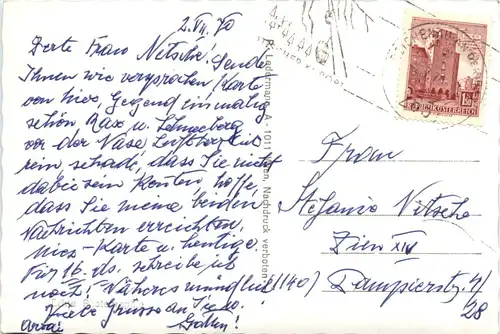 2.VII.70
Werte Frau Nitsche! Sende
Ihnen wie versprochen Karte
von hier, Gegend einmalig
schön Rax u. Schneeberg
vor der Nase Luft
rein schade, dass Sie nicht
dabei sein konnten, hoffe,
dass Sie meine beiden
Nachrichten erreichten,
Karte u. heutige.
Für 16. ds. schreibe ich
noch! Näheres mündlich
Grüsse an Sie
Frau
Stefanie Nitsche
Wien XIV
(1140) Dampierstr. 4/
28
REPUBLIK ÖSTERREICH
Ledermann, A - 1011 Wien, Nachdruck verboten